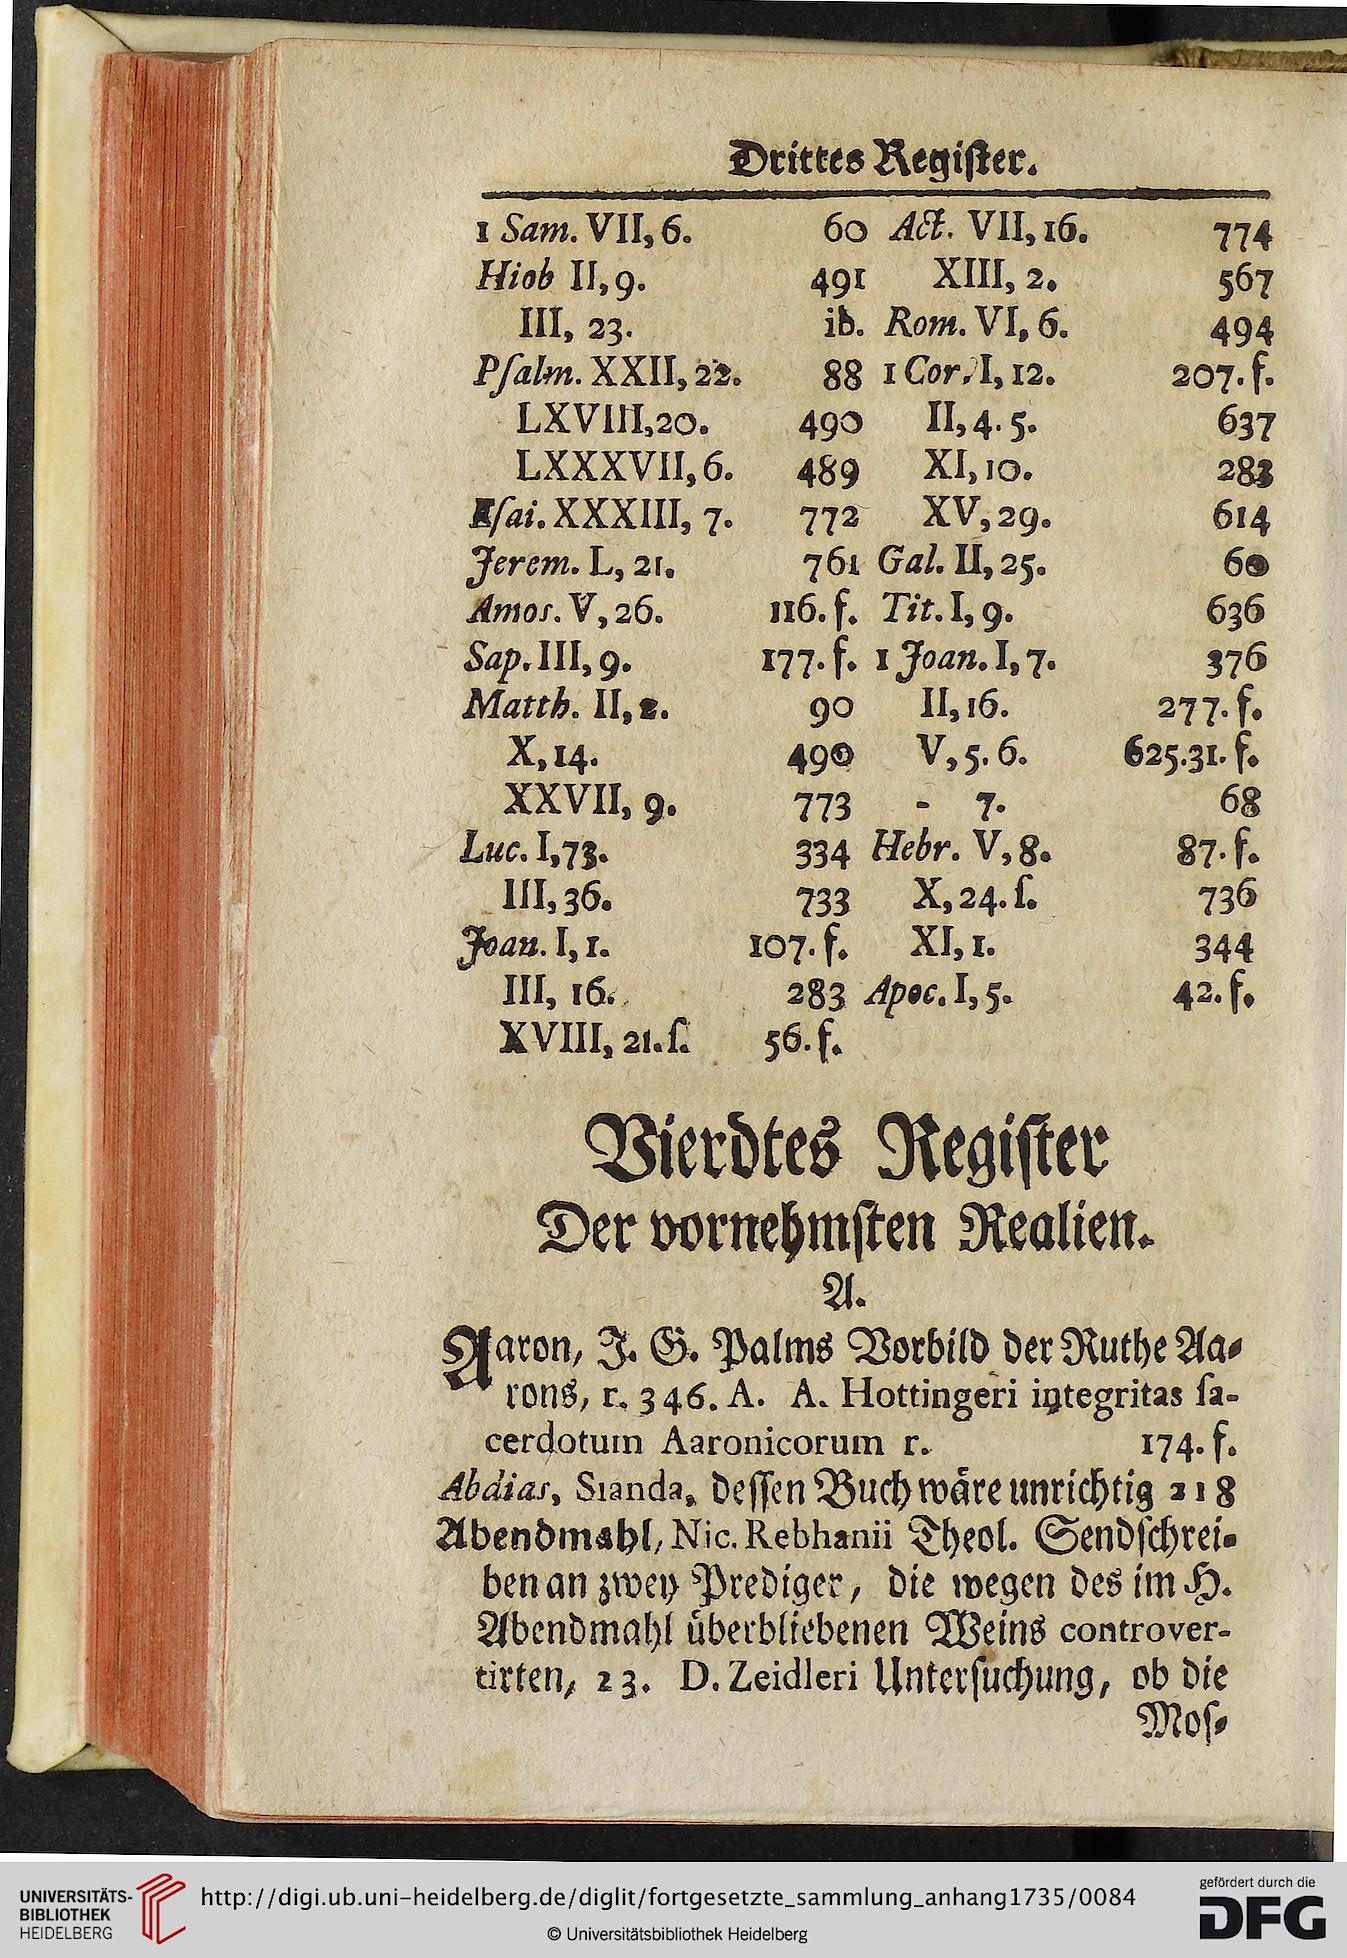 Drittes Regiſter.
1 Sam. VII, 6. 60
Hiob II, 9. 491
III, 23. ib.
Pſalm. XXII, 22. 88
LXVIII, 20. 490
LXXXVII, 6. 489
Eſai. XXXIII, 7. 772
Jerem. L, 21. 761
Amos. V, 26. 116. f.
Sap. III, 9. 177. f.
Matth. II, 2. 90
X, 14. 490
XXVII, 9. 773
Luc. I, 73. 334
III, 36. 733
Joan. I, 1. 107. f.
III, 16. 283
XVIII, 21. ſ. 56. f.
Act. VII, 16. 774
XIII, 2. 567
Rom. VI, 6. 494
1 Cor. I, 12. 207. f.
II, 4. 5. 637
XI, 10. 283
XV, 29. 614
Gal. II, 25. 60
Tit. I, 9. 636
1 Joan. I, 7. 376
II, 16. 277. f.
V, 5. 6. 625.31. f.
- 7. 68
Hebr. V, 8. 87. f.
X, 24. ſ. 736
XI, 1. 344
Apoc. I, 5. 42. f.
Vierdtes Regiſter
Der vornehmſten Realien.
A.
Aaron, J. G. Palms Vorbild der Ruthe Aa-
rons, r. 346. A. A. Hottingeri integritas ſa-
cerdotum Aaronicorum r. 174. f.
Abdias, Sianda, deſſen Buch wäre unrichtig 218
Abendmahl, Nic. Rebhanii Theol. Sendſchrei-
ben an zwey Prediger, die wegen des im H.
Abendmahl überbliebenen Weins controver-
tirten, 23. D. Zeidleri Unterſuchung, ob die
Moſ-
UNIVERSITÄTS-
BIBLIOTHEK
HEIDELBERG
http://digi.ub.uni-heidelberg.de/diglit/fortgesetzte_sammlung_anhang1735/0084
© Universitätsbibliothek Heidelberg
gefördert durch die
DFG